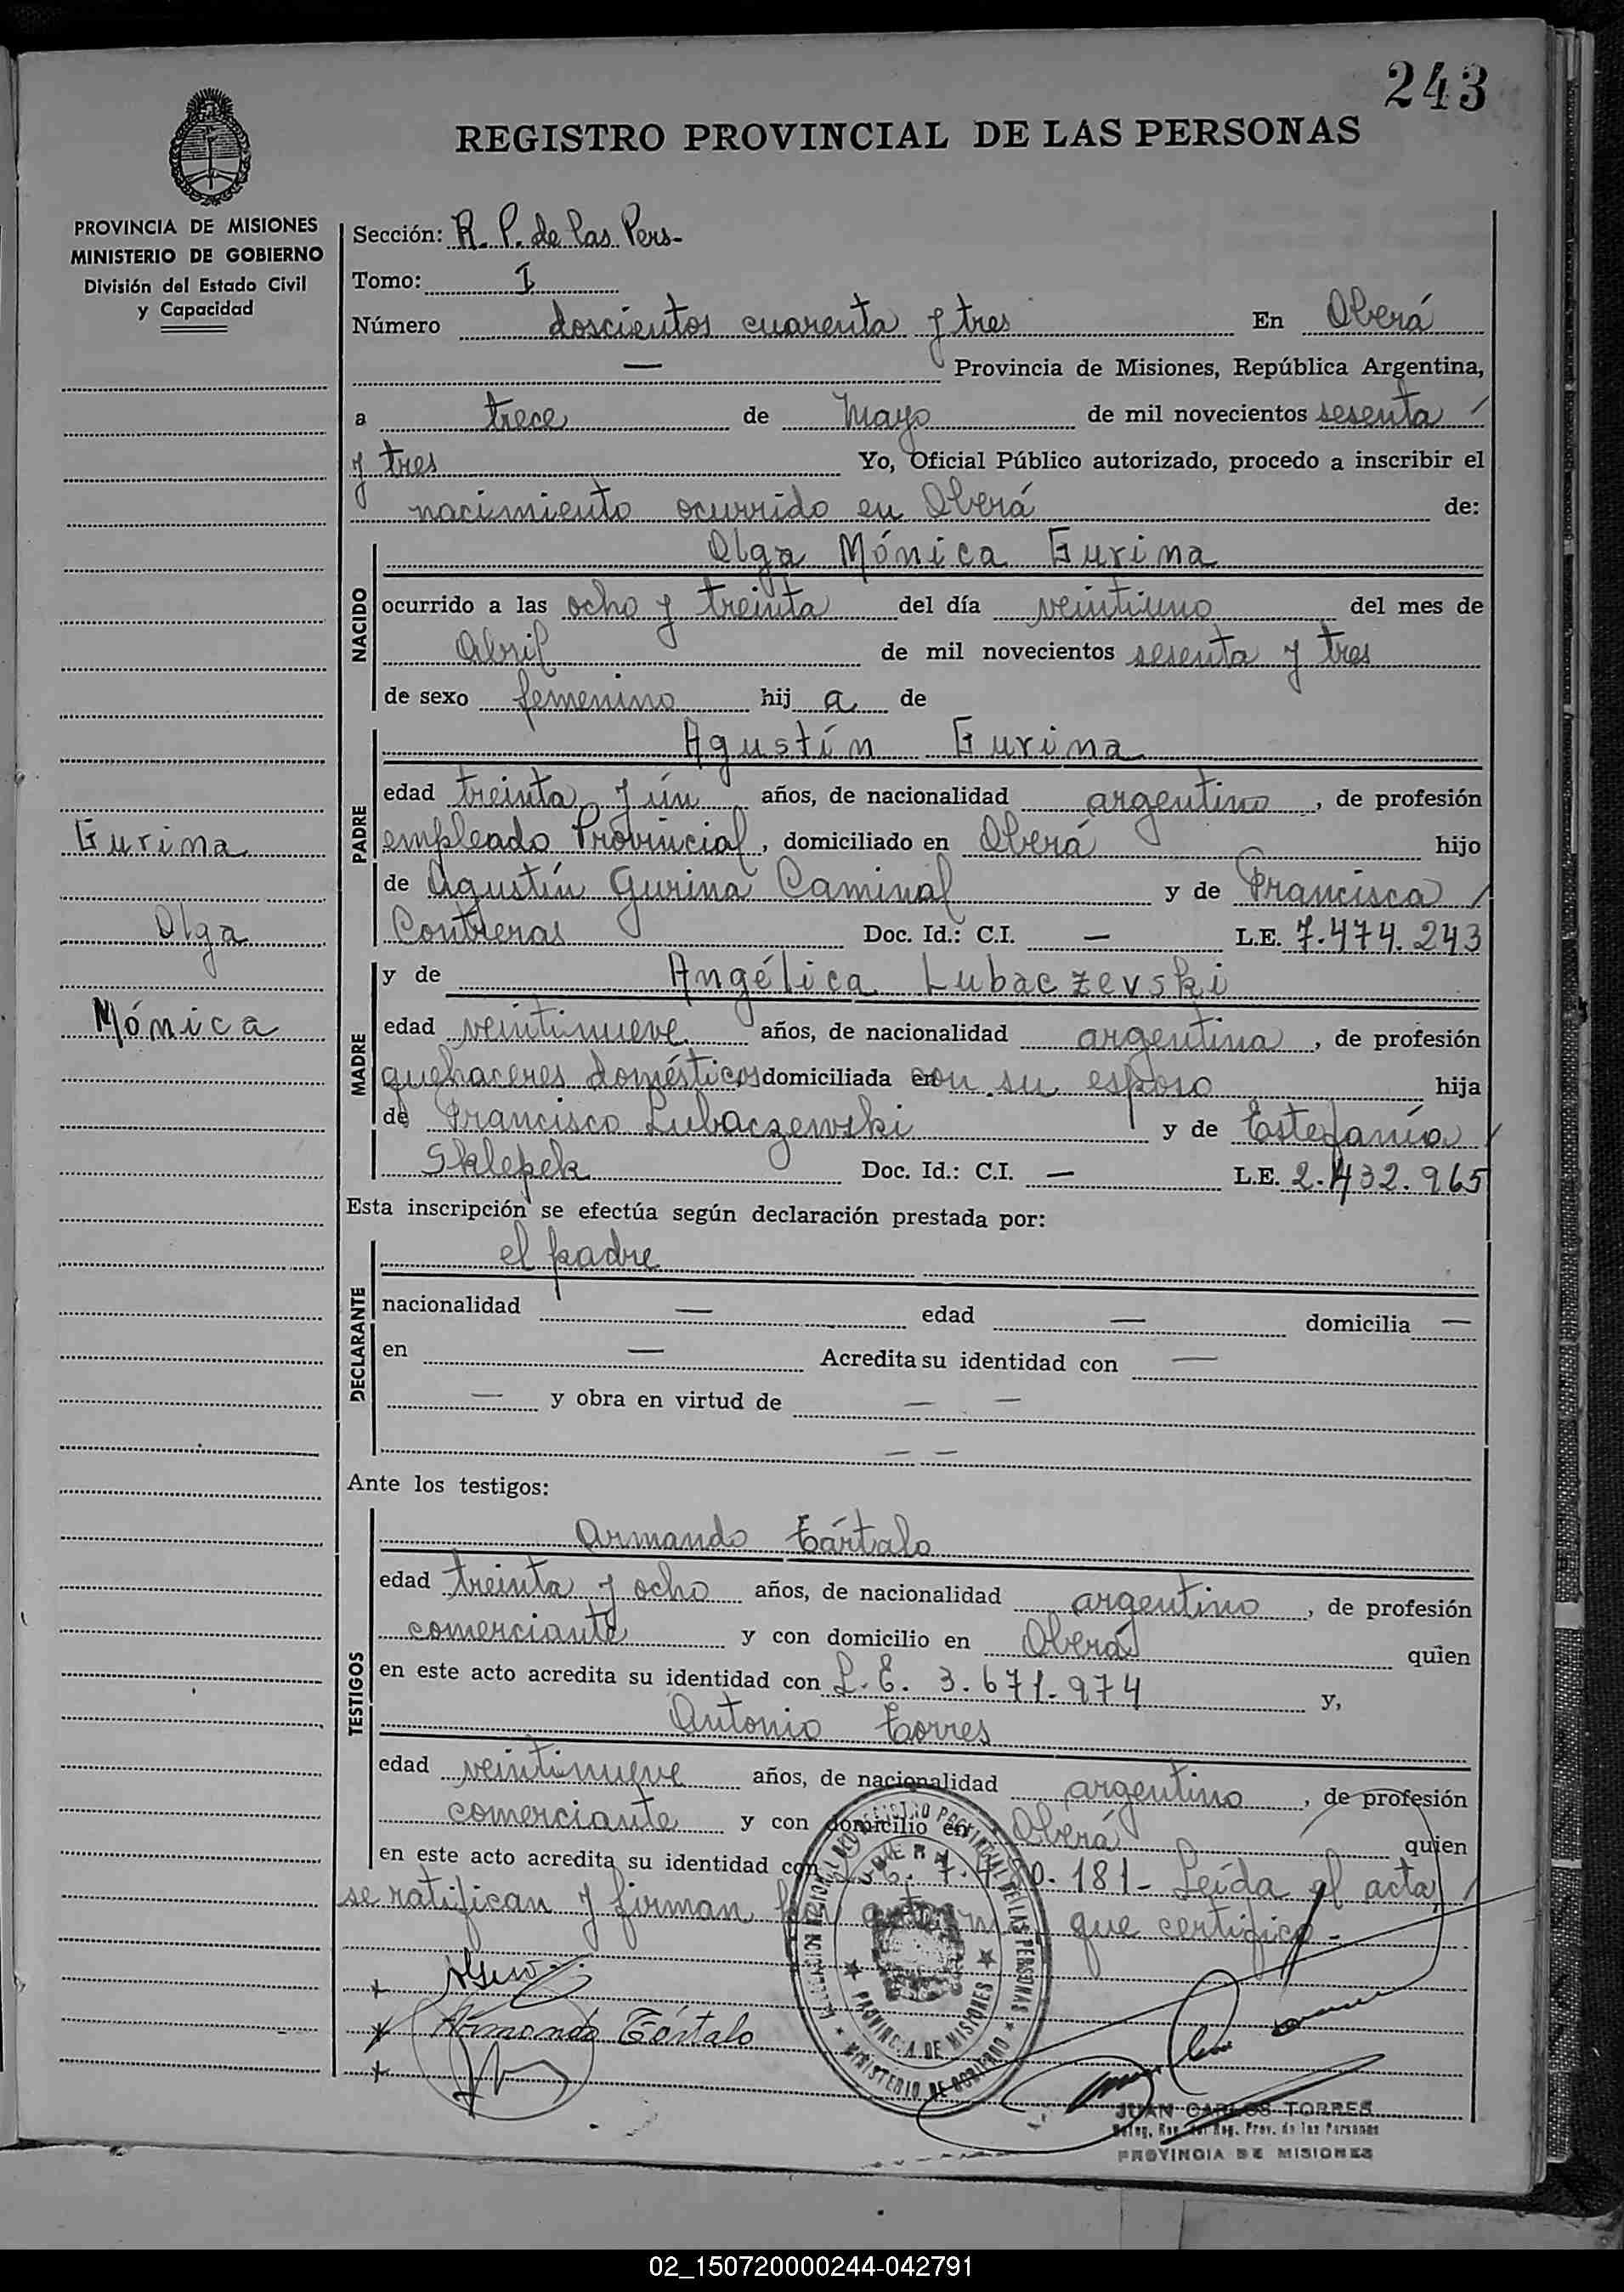 243
REGISTRO PROVINCIAL DE LAS PERSONAS
PROVINCIA DE MISIONES
MINISTERIO DE GOBIERNO
División del Estado Civil
y Capacidad
Gurina
Olga
Mónica
Sección: R. P. de las Pers-
Tomo: I
Número doscientos cuarenta y tres En Oberá
— Provincia de Misiones, República Argentina,
a trece de Mayo de mil novecientos sesenta /
y tres Yo, Oficial Público autorizado, procedo a inscribir el
nacimiento ocurrido en Oberá de:
NACIDO
Olga Mónica Gurina
ocurrido a las ocho y treinta del día veintiuno del mes de
Abril de mil novecientos sesenta y tres
de sexo femenino hij a de
PADRE
Agustín Gurina
edad treinta y ún años, de nacionalidad argentino, de profesión
empleado Provincial, domiciliado en Oberá hijo
de Agustín Gurina Caminal y de Francisca /
Contreras Doc. Id.: C.I. — L.E. 7.474.243
MADRE
y de Angélica Lubaczevski
edad veintinueve años, de nacionalidad argentina, de profesión
quehaceres domésticos domiciliada en con su esposo hija
de Francisco Lubaczewski y de Estefanía /
Sklepek Doc. Id.: C.I. — L.E. 2.432.965
Esta inscripción se efectúa según declaración prestada por:
DECLARANTE
el padre
nacionalidad — edad — domicilia —
en — Acredita su identidad con —
— y obra en virtud de — —
— —
Ante los testigos:
TESTIGOS
Armando Tártalo
edad treinta y ocho años, de nacionalidad argentino, de profesión
comerciante y con domicilio en Oberá quien
en este acto acredita su identidad con L.E. 3.671.974 y,
Antonio Torres
edad veintinueve años, de nacionalidad argentino, de profesión
comerciante y con domicilio en Oberá quien
en este acto acredita su identidad con 181- Leída el acta, /
se ratifican y firman que certifico-
Armando Tártalo
REGISTRO PROVINCIAL DE LAS PERSONAS
PROVINCIA DE MISIONES
MINISTERIO DE GOBIERNO
JUAN CARLOS TORRES
Reg. Prov. de las Personas
PROVINCIA DE MISIONES
02_150720000244-042791